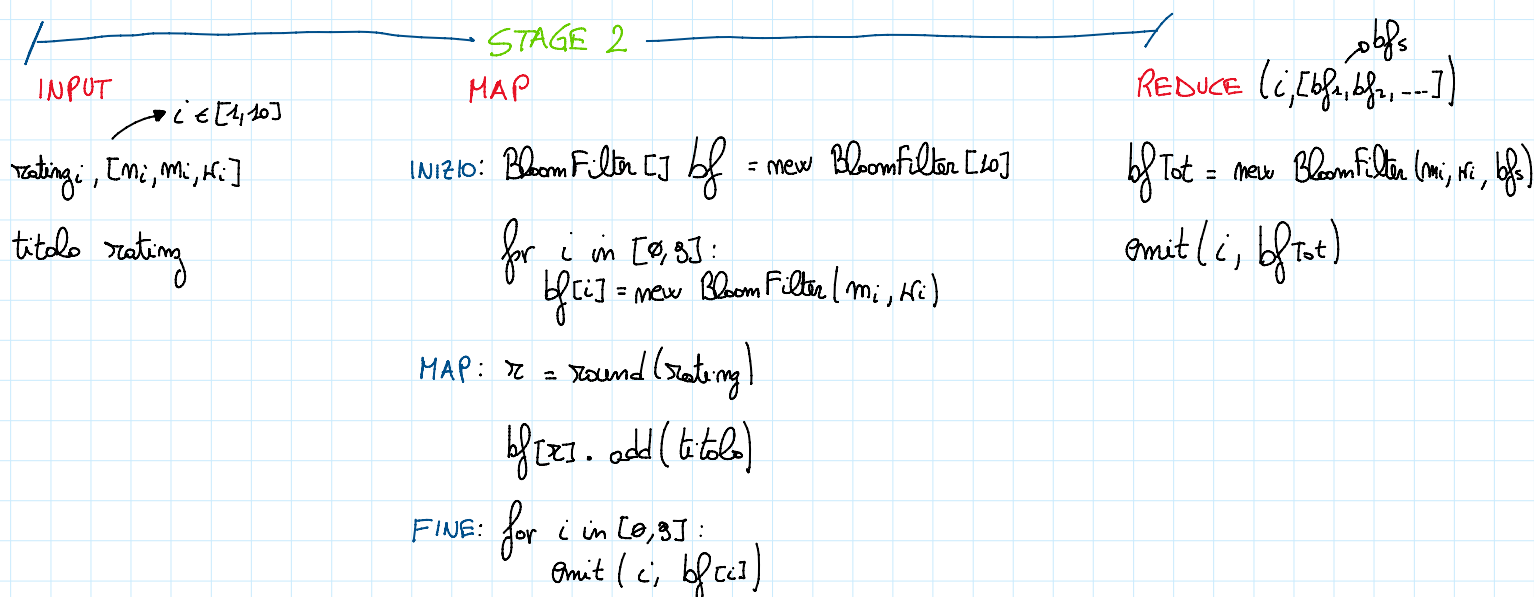 STAGE 2
INPUT
i ∈ [1,10]
rating i, [ni, mi, Ki]
titolo rating
MAP
INIZIO: BloomFilter[] bf = new BloomFilter[10]
for i in [0,9]:
bf[i] = new BloomFilter(mi, Ki)
MAP: r = round(rating)
bf[r].add(titolo)
FINE: for i in [0,9]:
emit(i, bf[i])
bfs
REDUCE (i,[bf1, bf2, ...])
bfTot = new BloomFilter(mi, Ki, bfs)
emit(i, bfTot)